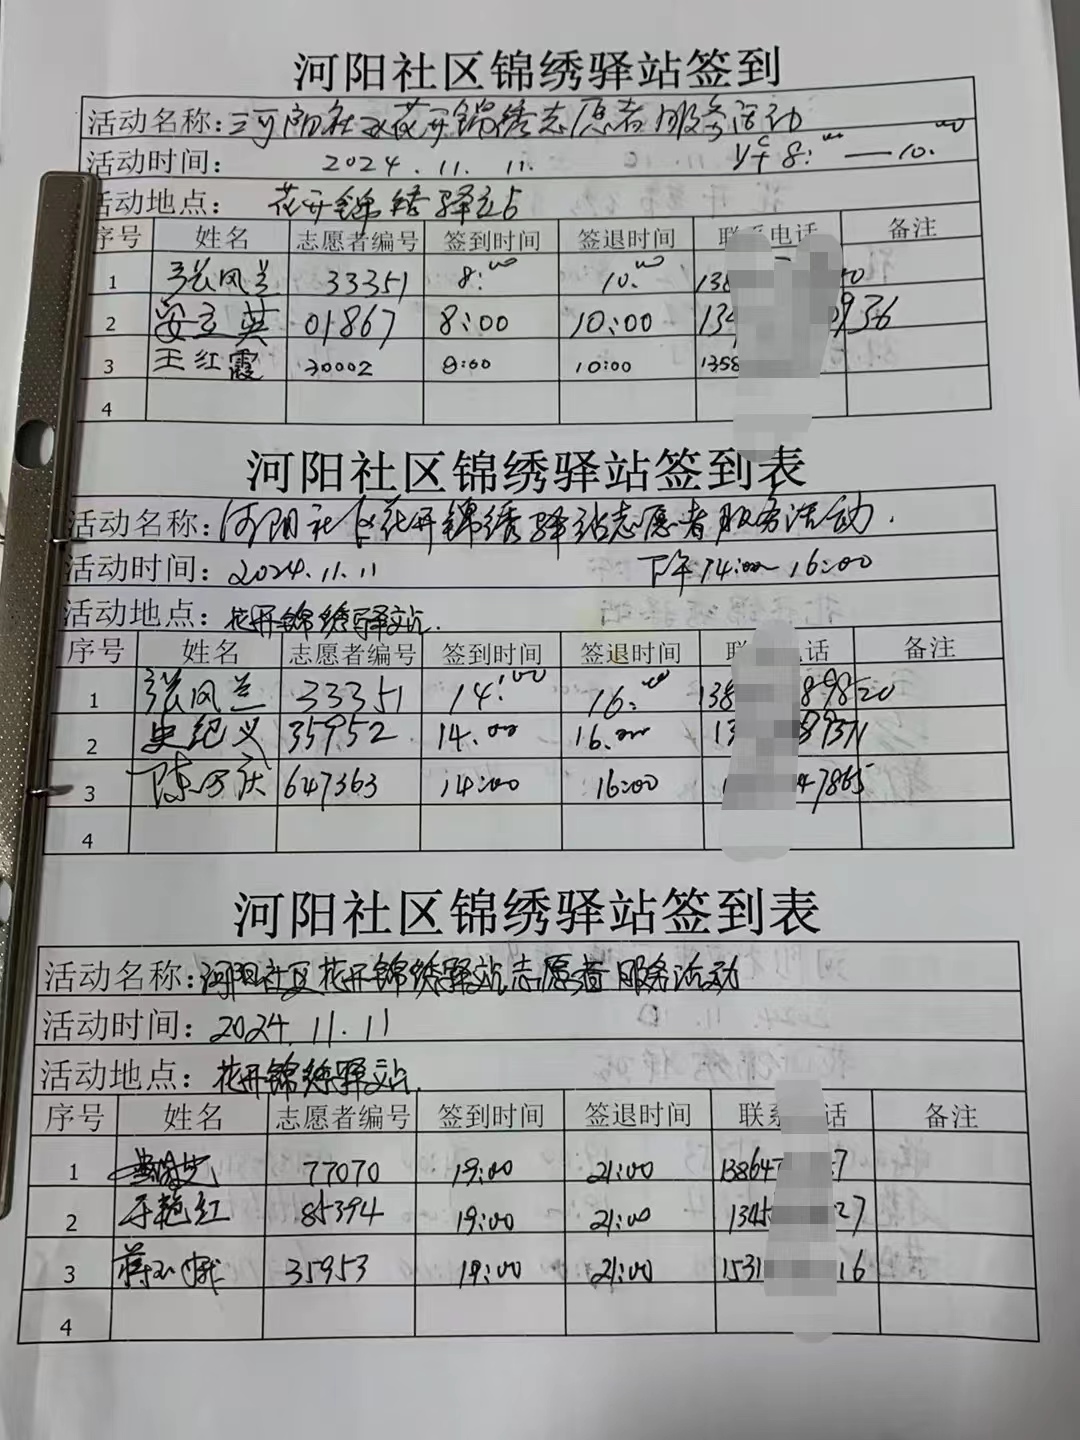 河阳社区锦绣驿站签到
活动名称：河阳社区花开锦绣志愿者服务活动
活动时间： 2024.11.11. 上午8:00—10:00
活动地点： 花开锦绣驿站
序号 姓名 志愿者编号 签到时间 签退时间 联系电话 备注
1 张凤兰 33351 8:00 10:00 138 0
2 安立英 01867 8:00 10:00 134 0936
3 王红霞 30002 8:00 10:00 1358
4
河阳社区锦绣驿站签到表
活动名称：河阳社区花开锦绣驿站志愿者服务活动.
活动时间：2024.11.11 下午14:00—16:00
活动地点：花开锦绣驿站.
序号 姓名 志愿者编号 签到时间 签退时间 联 话 备注
1 张凤兰 33351 14:00 16:00 138 89820
2 史纪义 35952 14:00 16:00 13 89371
3 陈 庆 647363 14:00 16:00 1 47865
4
河阳社区锦绣驿站签到表
活动名称：河阳社区花开锦绣驿站志愿者服务活动
活动时间：2024.11.11
活动地点：花开锦绣驿站.
序号 姓名 志愿者编号 签到时间 签退时间 联系 话 备注
1 77070 19:00 21:00 13864 7
2 于艳红 85394 19:00 21:00 1345 27
3 蒋 35953 19:00 21:00 1531 16
4